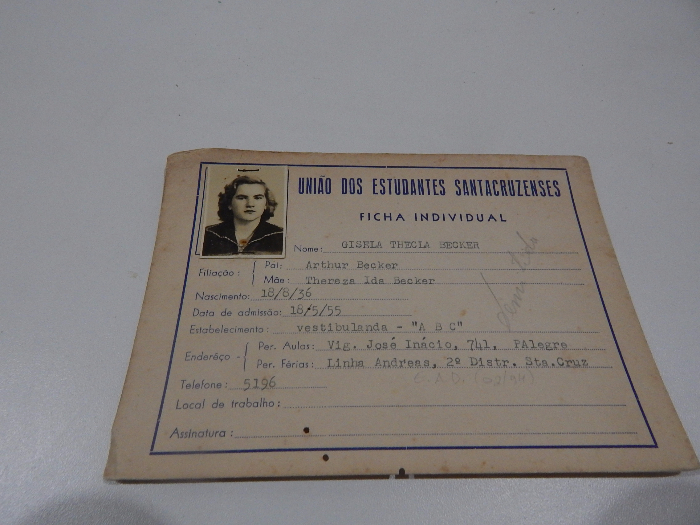 UNIÃO DOS ESTUDANTES SANTACRUZENSES
FICHA INDIVIDUAL
Nome: GISELA THECLA BECKER
Filiação: Pai: Arthur Becker
Mãe: Thereza Ida Becker
Nascimento: 18/8/36
Data de admissão: 18/5/55
Estabelecimento: vestibulanda - "A B C"
Enderêço - Per. Aulas: Vig. José Inácio, 741, PAlegre
Per. Férias: Linha Andreas, 2º Distr. Sta.Cruz
Telefone: 5196
Local de trabalho:
Assinatura: